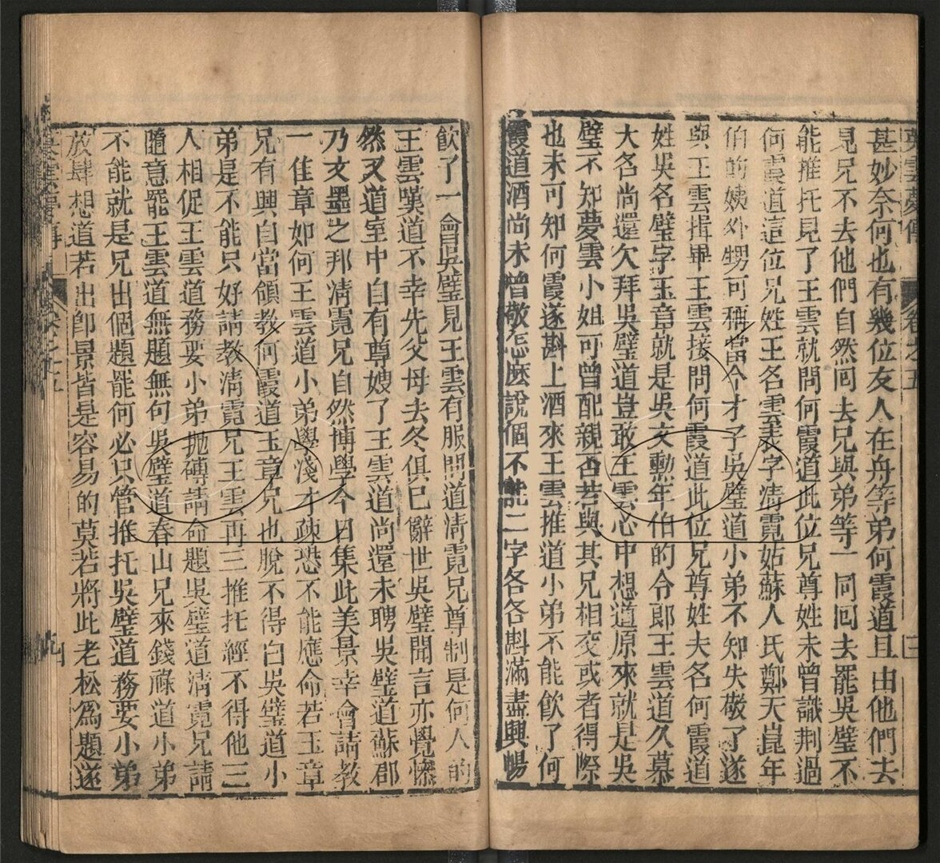 英雲夢傳 卷之五 三
甚妙奈何也有幾位友人在舟等弟何霞道且由他們去
見兄不去他們自然回去兄與弟等一同回去罷吳璧不
能推托見了王雲就問何霞道此位兄尊姓未曾識荆過
何霞道這位兄姓王名雲表字清霓姑蘇人氏鄭天崑年
伯前姨外甥可稱當今才子吳璧道小弟不知失敬了遂
與王雲揖畢王雲接問何霞道此位兄尊姓大名何霞道
姓吳名璧字玉章就是吳文勳年伯的令郎王雲道久慕
大名尚還欠拜吳璧道豈敢王雲心中想道原來就是吳
璧不知夢雲小姐可曾配親否若與其兄相交或者得際
也未可知何霞遂斟上酒來王雲推道小弟不能飲了何
霞道酒尚未曾敬怎麽說個不能二字各各斟滿盡興暢
飲了一會吳璧見王雲有服問道清霓兄尊制是何人的
王雲嘆道不幸先父母去冬俱已辭世吳璧聞言亦覺慘
然又道室中自有尊嫂了王雲道尚還未聘吳璧道蘇郡
乃文墨之邦清霓兄自然博學今日集此美景幸會請教
一佳章如何王雲道小弟學淺才疎恐不能應命若玉章
兄有興自當領教何霞道玉章兄也脫不得白吳璧道小
弟是不能只好請教清霓兄王雲再三推托經不得他三
人相促王雲道務要小弟抛磚請命題吳璧道清霓兄請
隨意罷王雲道無題無句吳璧道春山兄來錢祿道小弟
不能就是兄出個題罷何必只管推托吳璧道務要小弟
放肆想道若出卽景皆是容易的莫若將此老松爲題遂
卷之五